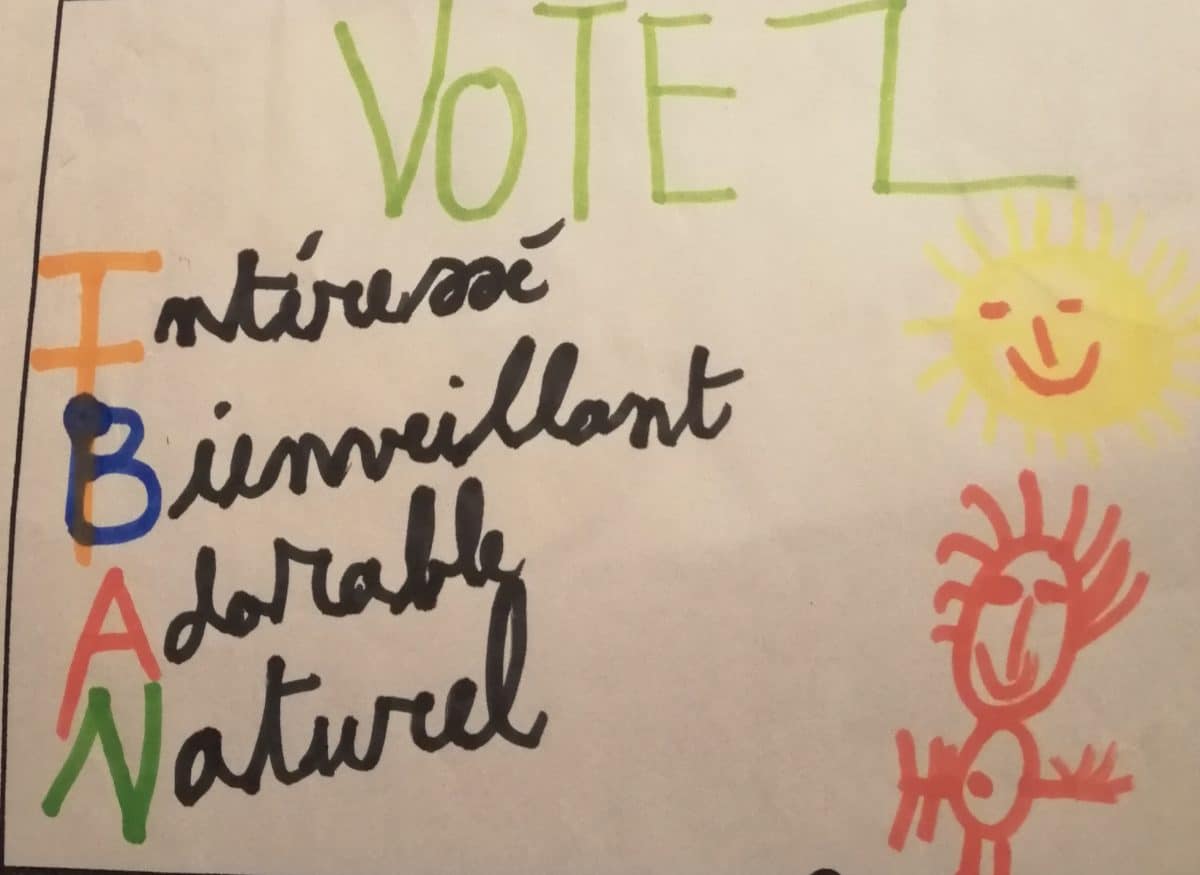 VOTEZ
Intéressé
Bienveillant
Adorable
Naturel